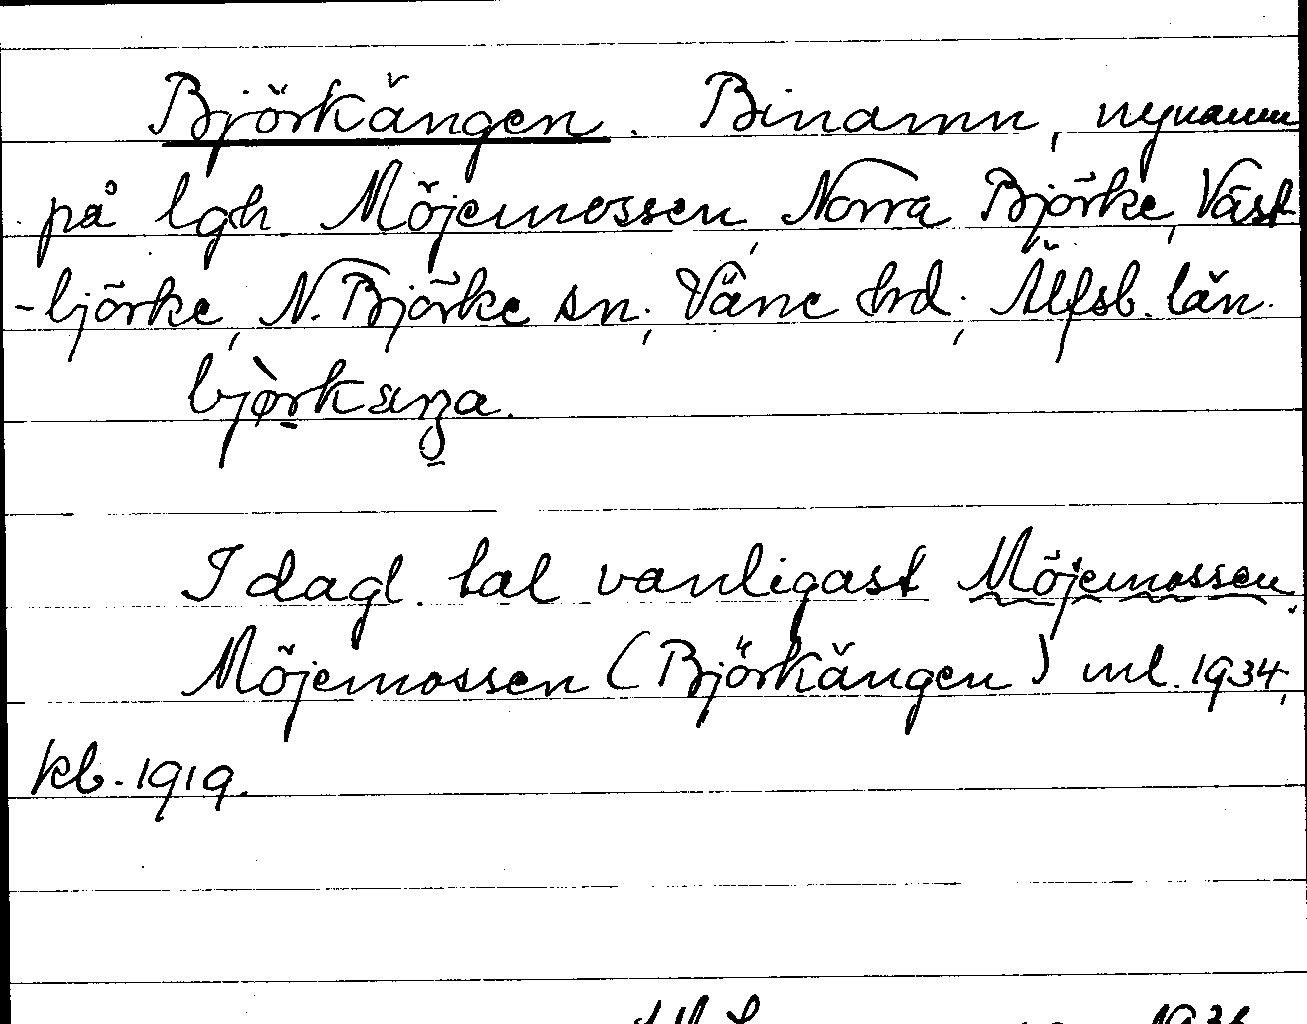 Björkängen. Binamn, nynamn
på lgh. Möjemossen, Norra Björke, Väst-
-björke, N. Björke sn; Väne hd; Älfsb. län.
I dagl. tal vanligast Möjemossen.
Möjemossen (Björkängen) ml. 1934,
kb. 1919.